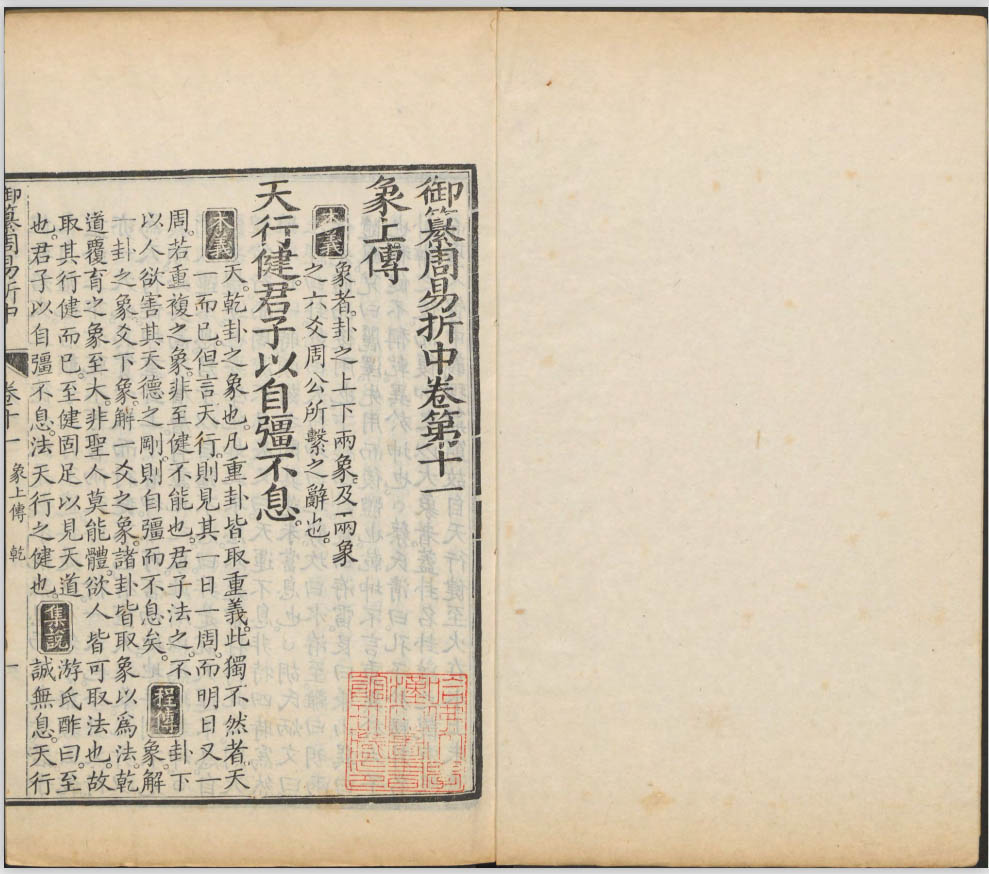 御纂周易折中卷第十一
象上傳
本義
象者。卦之上下兩象。及兩象
之六爻周公所繫之辭也。
天行健。君子以自彊不息。
本義
天。乾卦之象也。凡重卦皆取重義。此獨不然者。天
一而已。但言天行。則見其一日一周。而明日又一
周。若重複之象。非至健不能也。君子法之。不
以人欲害其天德之剛。則自彊而不息矣。
程傳
卦下
象。解
一卦之象。爻下象。解一爻之象。諸卦皆取象以爲法。乾
道覆育之象至大。非聖人莫能體。欲人皆可取法也。故
取其行健而已。至健固足以見天道
也。君子以自彊不息。法天行之健也。
集說
游氏酢曰。至
誠無息。天行
御纂周易折中
卷十一
象上傳
乾
一
哈佛大學
漢和圖書
館珍藏印